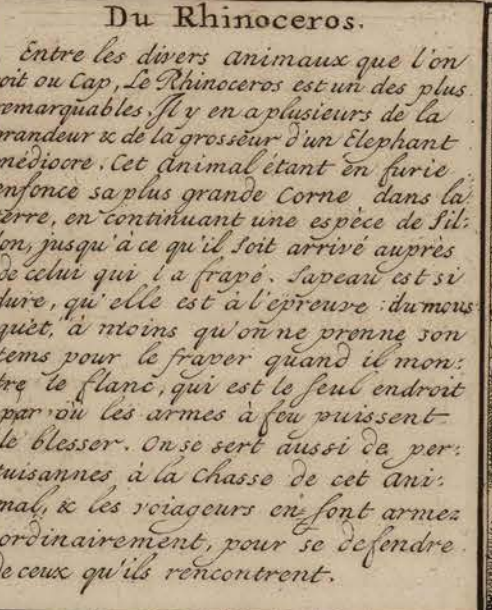 Du Rhinoceros.
Entre les divers animaux que l'on
oit ou Cap, Le Rhinoceros est un des plus
remarquables. Il y en a plusieurs de la
randeur & de la grosseur d'un Elephant
médiocre. Cet animal étant en furie
enfonce sa plus grande Corne dans la
terre, en continuant une espèce de Sil:
lon, jusqu'à ce qu'il soit arrivé auprès
de celui qui l'a frapé. Sa peau est si
dure, qu'elle est à l'épreuve du mous
quet, à moins qu'on ne prenne son
tems pour le fraper quand il mon:
tre le flanc, qui est le seul endroit
par où les armes à feu puissent
le blesser. On se sert aussi de per:
tuisannes à la Chasse de cet ani:
mal, & les voiageurs en sont armez
ordinairement, pour se defendre
de ceux qu'ils rencontrent.